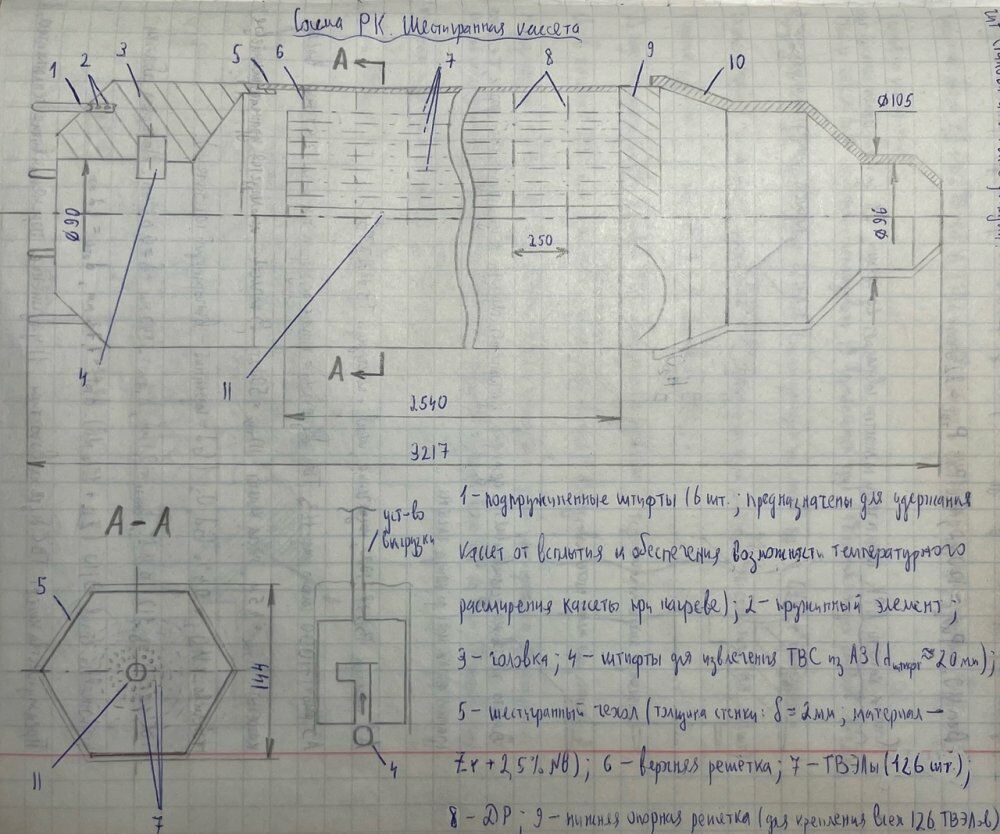 Схема РК. Шестигранная кассета
1 2 3 5 6 А 7 8 9 10
Ø105
Ø90
250
Ø96
4
А
11
2540
3217
А-А
уст-во
выгрузки
5
144
11
7
4
1 – подпружиненные штифты (6 шт.; предназначены для удержания
кассет от всплытия и обеспечения возможности температурного
расширения кассеты при нагреве); 2 – пружинный элемент;
3 – головка; 4 – штифты для извлечения ТВС из АЗ (dштифт ≈ 20 мм);
5 – шестигранный чехол (толщина стенки: δ = 2мм; материал –
Zr + 2,5% Nb); 6 – верхняя решётка; 7 – ТВЭЛы (126 шт.);
8 – ДР; 9 – нижняя опорная решётка (для крепления всех 126 ТВЭЛов)